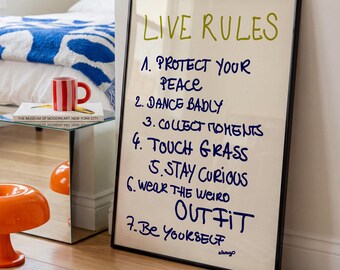 LIVE RULES
1. PROTECT YOUR
PEACE
2. DANCE BADLY
3. COLLECT MOMENTS
4. TOUCH GRASS
5. STAY CURIOUS
6. WEAR THE WEIRD
OUTFIT
7. BE YOURSELF
THE MUSEUM OF MODERN ART, NEW YORK CITY